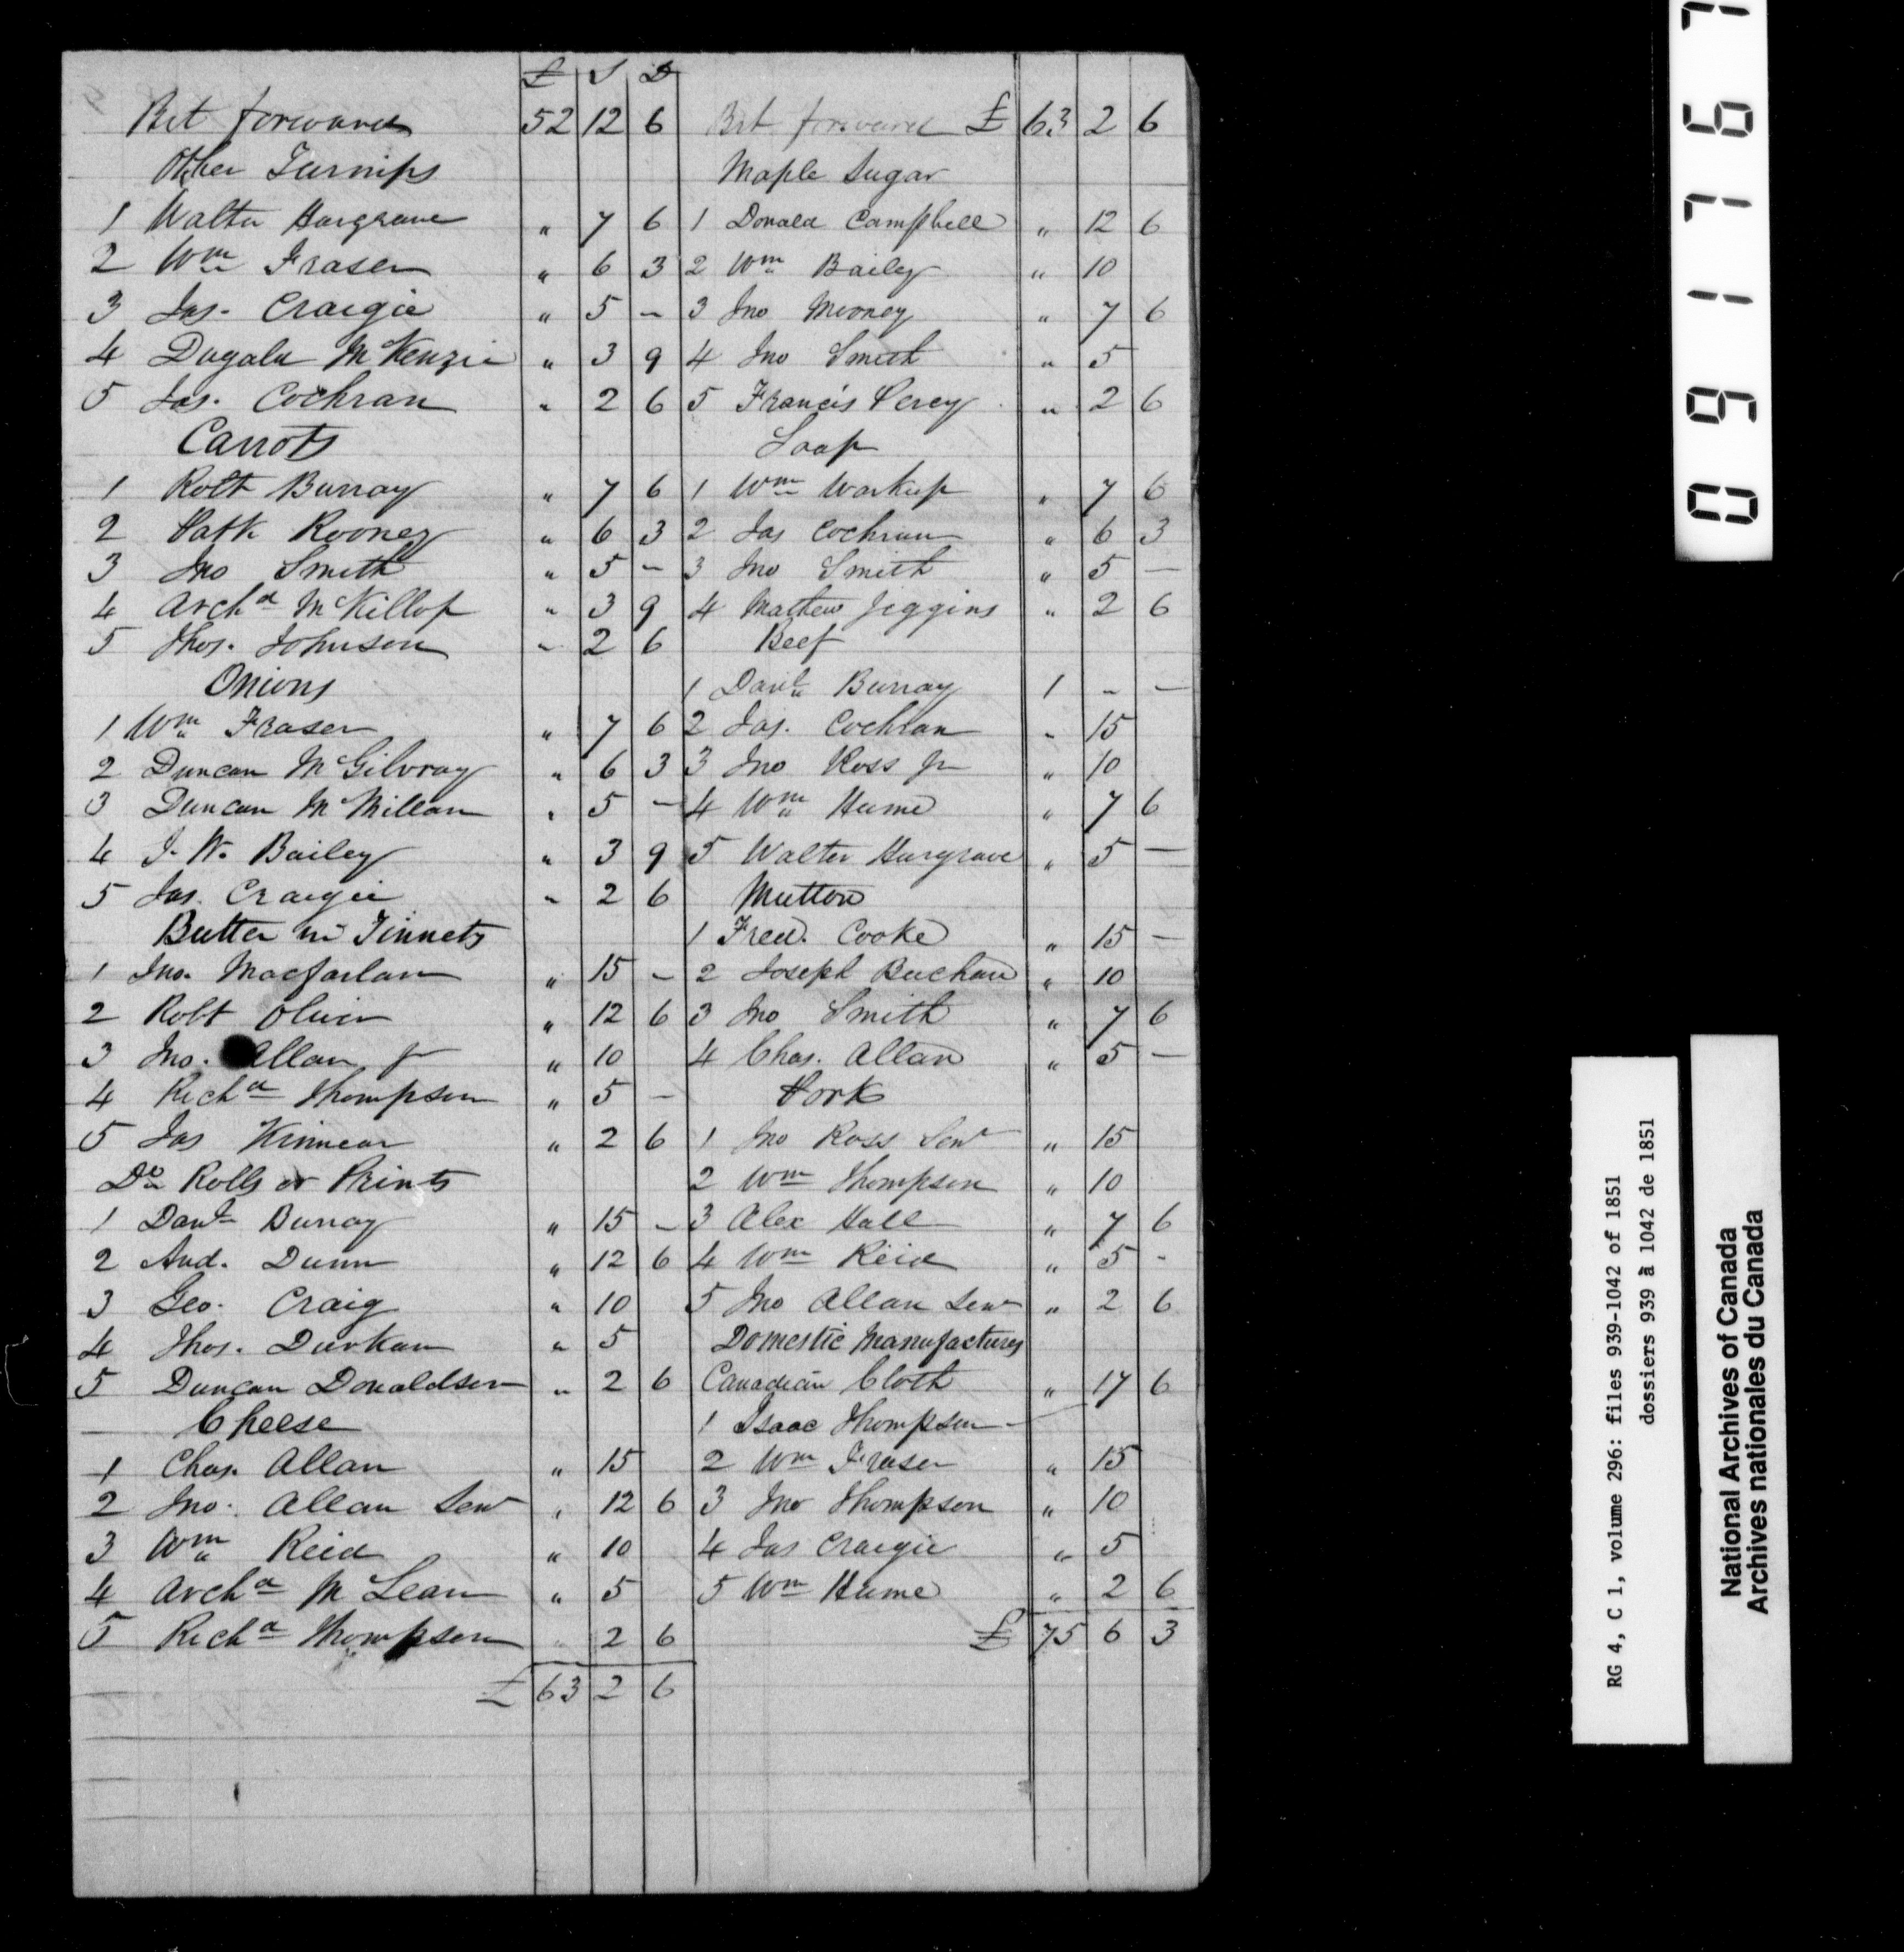 £ S D
Brt forward 52 12 6
Other Turnips
1 Walter Hargrave " 7 6
2 Wm Fraser " 6 3
3 Jas. Craigie " 5 -
4 Dugald McKenzie " 3 9
5 Jas. Cochran " 2 6
Carrots
1 Robt Burray " 7 6
2 Patk Rooney " 6 3
3 Jno Smith " 5 -
4 Archd McKillop " 3 9
5 Thos. Johnson " 2 6
Onions
1 Wm Fraser " 7 6
2 Duncan McGilvray " 6 3
3 Duncan McMillan " 5 -
4 J. W. Bailey " 3 9
5 Jas. Craigie " 2 6
Butter in Tinnets
1 Jno. Macfarlan " 15 -
2 Robt Oliver " 12 6
3 Jno. Allan Jr " 10
4 Richd Thompson " 5 -
5 Jas Kinnear " 2 6
Do Rolls or Prints
1 Danl Burray " 15 -
2 And. Dunn " 12 6
3 Geo. Craig " 10
4 Thos. Durkan " 5
5 Duncan Donaldson " 2 6
Cheese
1 Chas. Allan " 15
2 Jno. Allan Senr " 12 6
3 Wm Reid " 10
4 Archd McLean " 5
5 Richd Thompson " 2 6
£ 63 2 6
Brt forward £ 63 2 6
Maple Sugar
1 Donald Campbell " 12 6
2 Wm Bailey " 10
3 Jno Mooney " 7 6
4 Jno Smith " 5
5 Francis Percy " 2 6
Soap
1 Wm Warkup " 7 6
2 Jas Cochran " 6 3
3 Jno Smith " 5 -
4 Mathew Jiggins " 2 6
Beef
1 Danl Burray 1 - -
2 Jas. Cochran " 15
3 Jno Ross Jr " 10
4 Wm Hume " 7 6
5 Walter Hargrave " 5 -
Mutton
1 Fred. Cooke " 15 -
2 Joseph Buchan " 10
3 Jno Smith " 7 6
4 Chas. Allan " 5 -
Pork
1 Jno Ross Senr " 15
2 Wm Thompson " 10
3 Alex Hall " 7 6
4 Wm Reid " 5 -
5 Jno Allan Senr " 2 6
Domestic Manufactures
Canadian Cloth " 17 6
1 Isaac Thompson
2 Wm Fraser " 15
3 Jno Thompson " 10
4 Jas Craigie " 5
5 Wm Hume " 2 6
£ 75 6 3
09167
RG 4, C 1, volume 296: files 939-1042 of 1851
dossiers 939 à 1042 de 1851
National Archives of Canada
Archives nationales du Canada